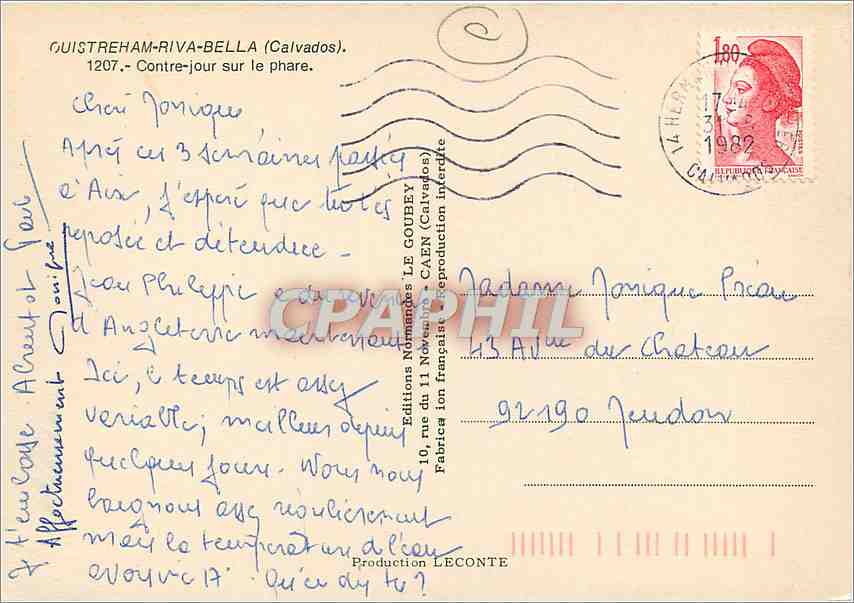 OUISTREHAM-RIVA-BELLA (Calvados).
1207.- Contre-jour sur le phare.
Chère Monique
Après ces 3 semaines passées
à Aix, j'espère que tu t'es
reposée et détendue -
Jean Philippe a du revenir
d'Angleterre maintenant
Ici, le temps est assez
variable, meilleur depuis
quelques jours. Nous nous
baignons assez régulièrement
mais la température de l'eau
avoisine 17°. Qu'en dis tu ?
Je t'embrasse
Affectueusement Monique
Editions Normandes LE GOUBEY
10, rue du 11 Novembre - CAEN (Calvados)
Fabrication française - Reproduction interdite
Production LECONTE
1,80
REPUBLIQUE FRANÇAISE
14 HERM
17
31
1982
CALVADOS
Madame Monique
43 Avue du Chateau
92190 Meudon
CPAPHIL